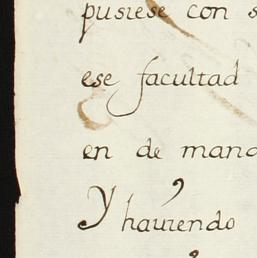 pusiese con s
ese facultad
en de mand
Y hauiendo